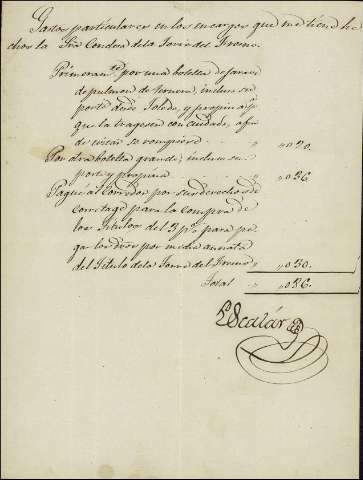 Gastos particulares en los encargos que me tiene he
chos la Sra Condesa de la Torre del Fresno.
Primeramte, por una botella de jarave
de pulmon de ternera, incluso su
porte desde Toledo, y propina
que la tragesen con cuidado, a fin
de evitar se rompiese " "020.
Por otra botella grande, incluso su
porte y propina " "036.
Pagué al Corredor por sus derechos de
corretage para la Compra de
los Titulos del 3 p% para pa
gar los dros por media annata
del Titulo de la Torre del Fresno " "030.
Total " "086.
Escalár